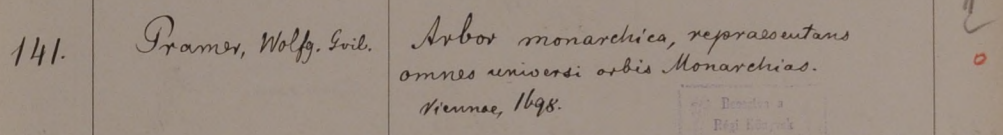 141. Pramer, Wolfg. Guil. Arbor monarchica, repraesentans
omnes universi orbis Monarchias.
Viennae, 1698.
Régi